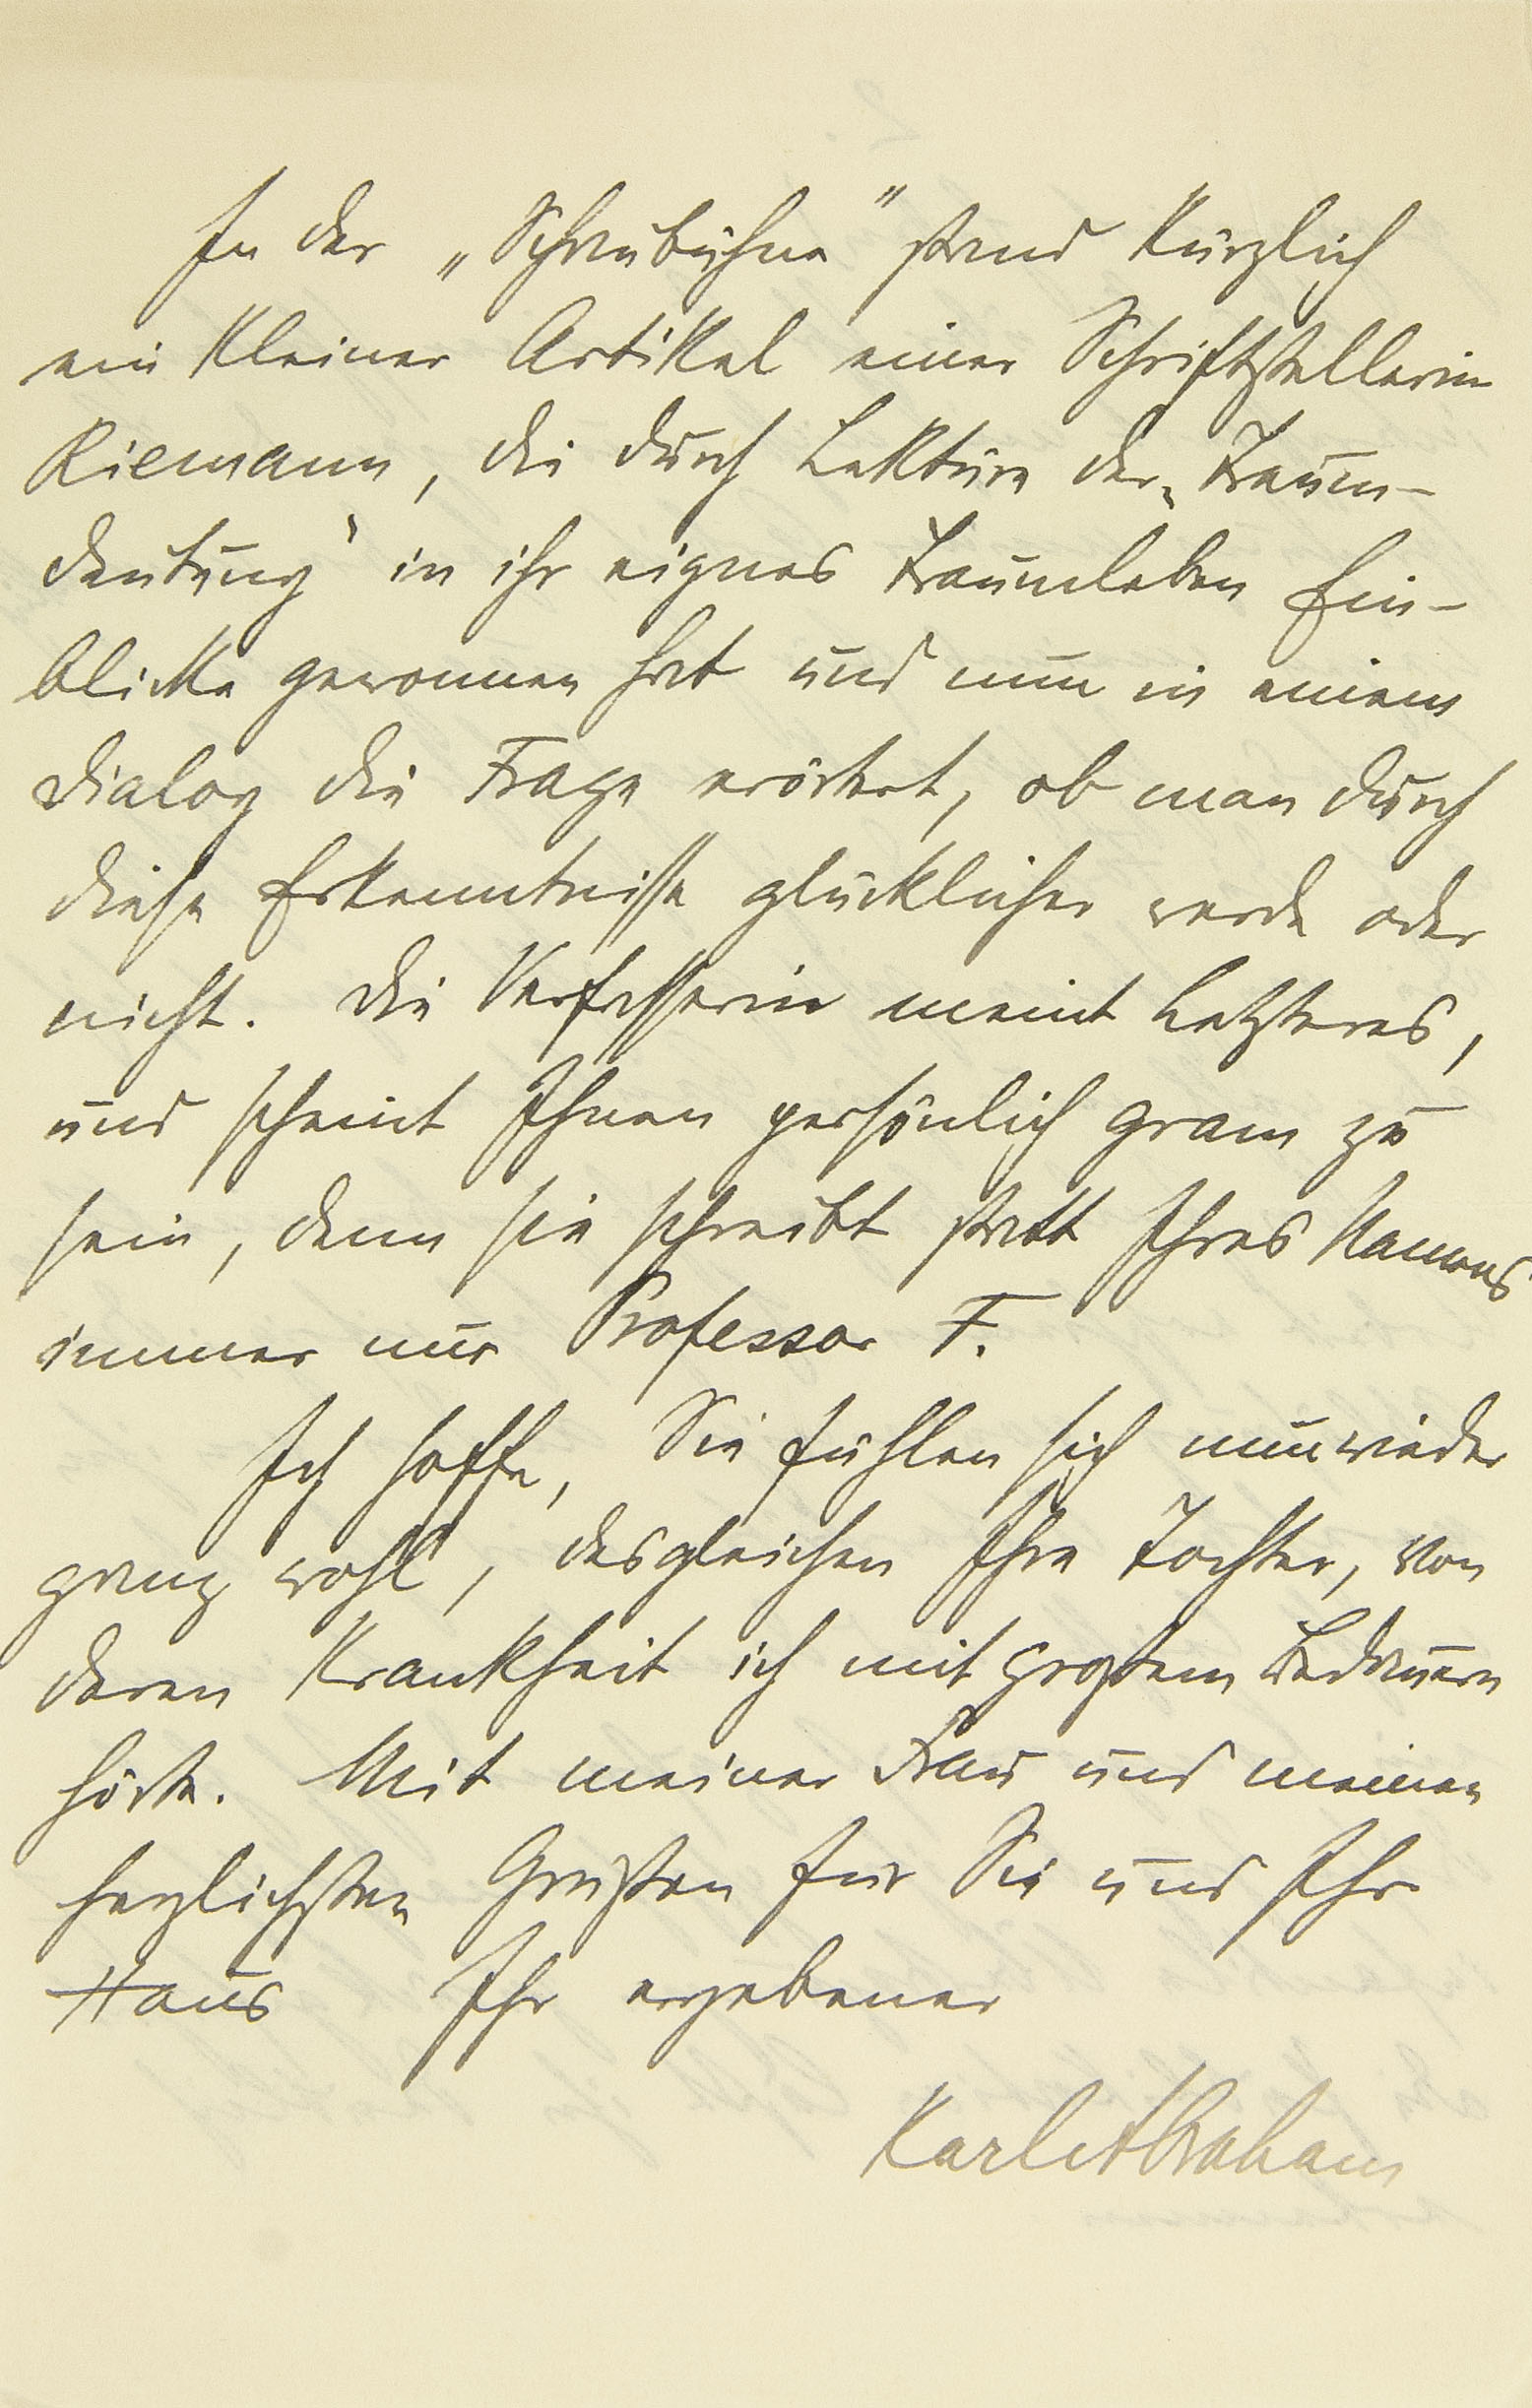 In der „Schaubühne" stand kürzlich
ein kleiner Artikel einer Schriftstellerin
Riemann, die durch Lektüre der „Traum-
deutung" in ihr eignes Traumleben Ein-
blicke gewonnen hat und nun in einem
Dialog die Frage erörtert, ob man durch
diese Erkenntnisse glücklicher werde oder
nicht. Die Verfasserin meint Letzteres,
und scheint Ihnen persönlich gram zu
sein, denn sie schreibt statt Ihres Namens
immer nur Professor F.
Ich hoffe, Sie fühlen sich nun wieder
ganz wohl, desgleichen Ihre Tochter, von
deren Krankheit ich mit großem Bedauern
hörte. Mit meiner Frau und meinen
herzlichsten Grüßen für Sie und Ihr
Haus Ihr ergebener
Karl Abraham